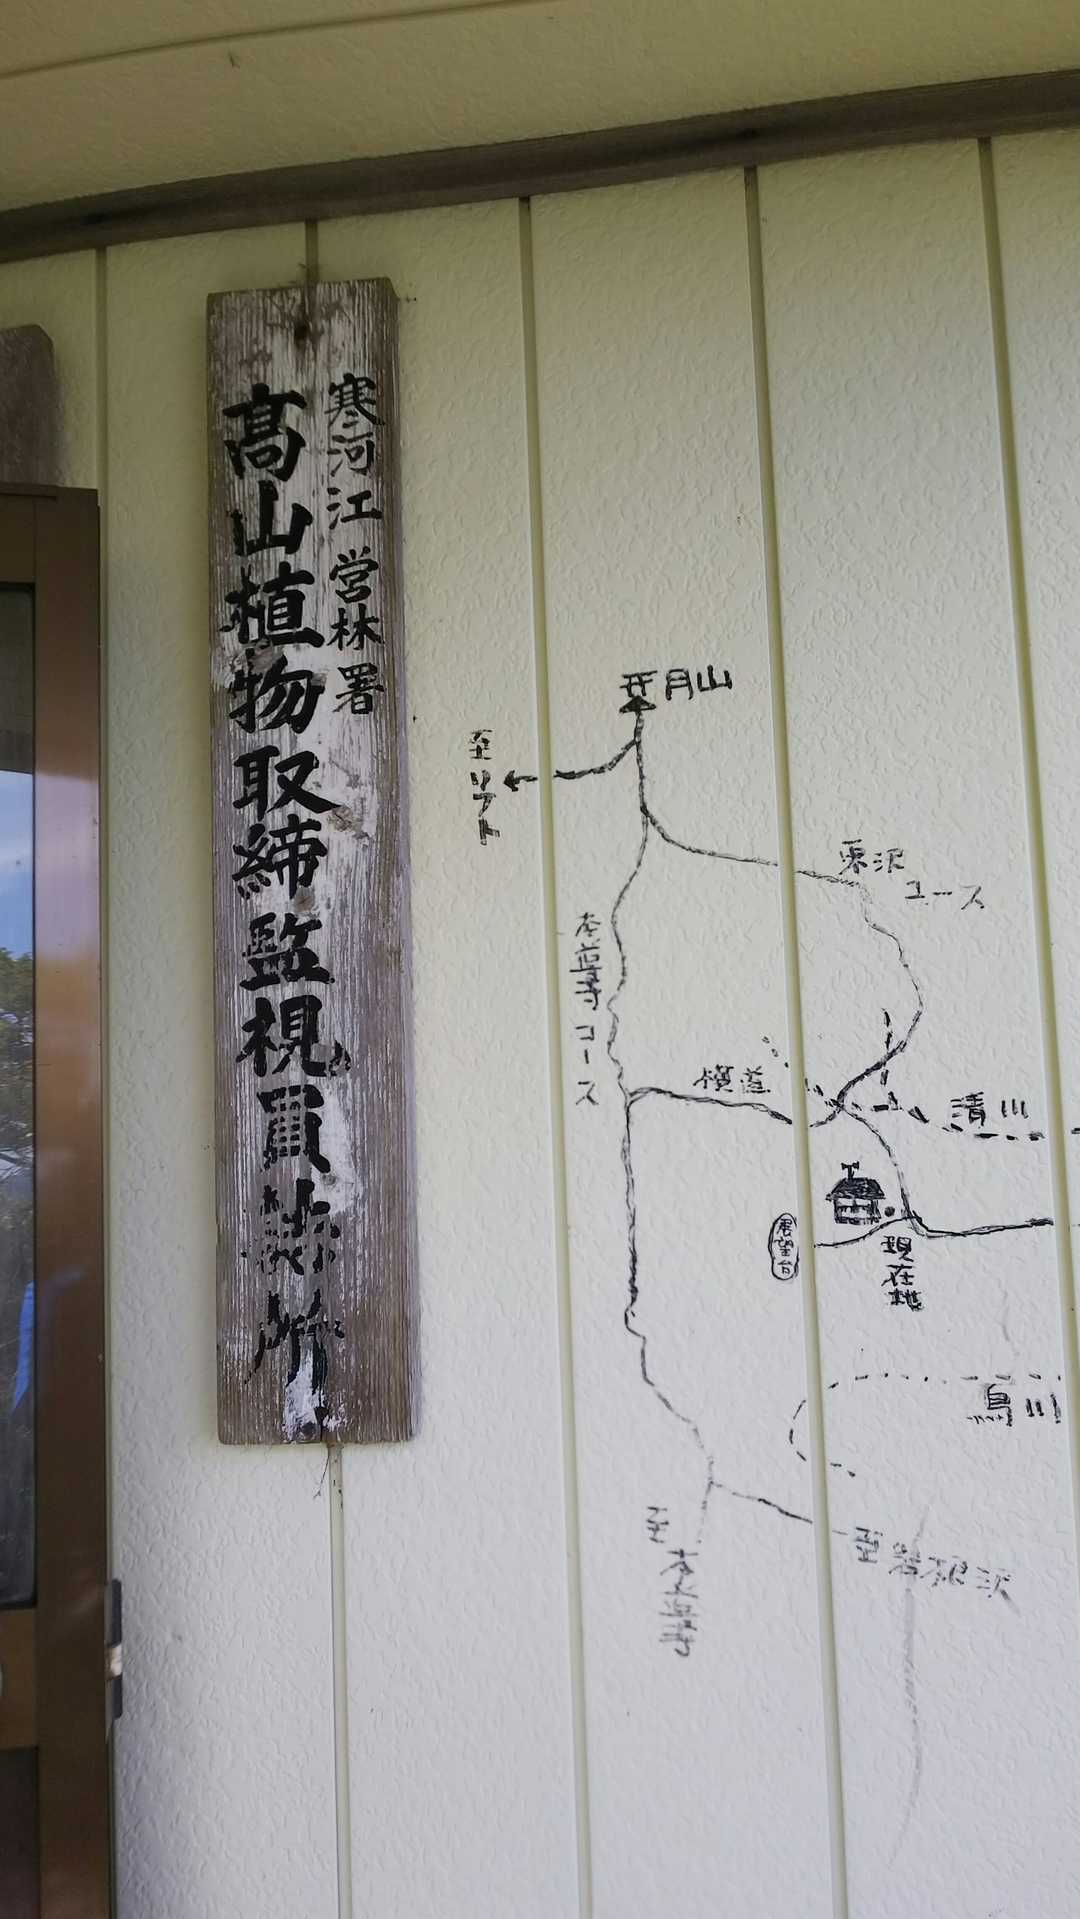 寒河江営林署
高山植物取締監視員詰所
月山
至リフト
栗沢
コース
本道寺コース
横道
清川
展望台
現在地
烏川
至岩根沢
至本道寺